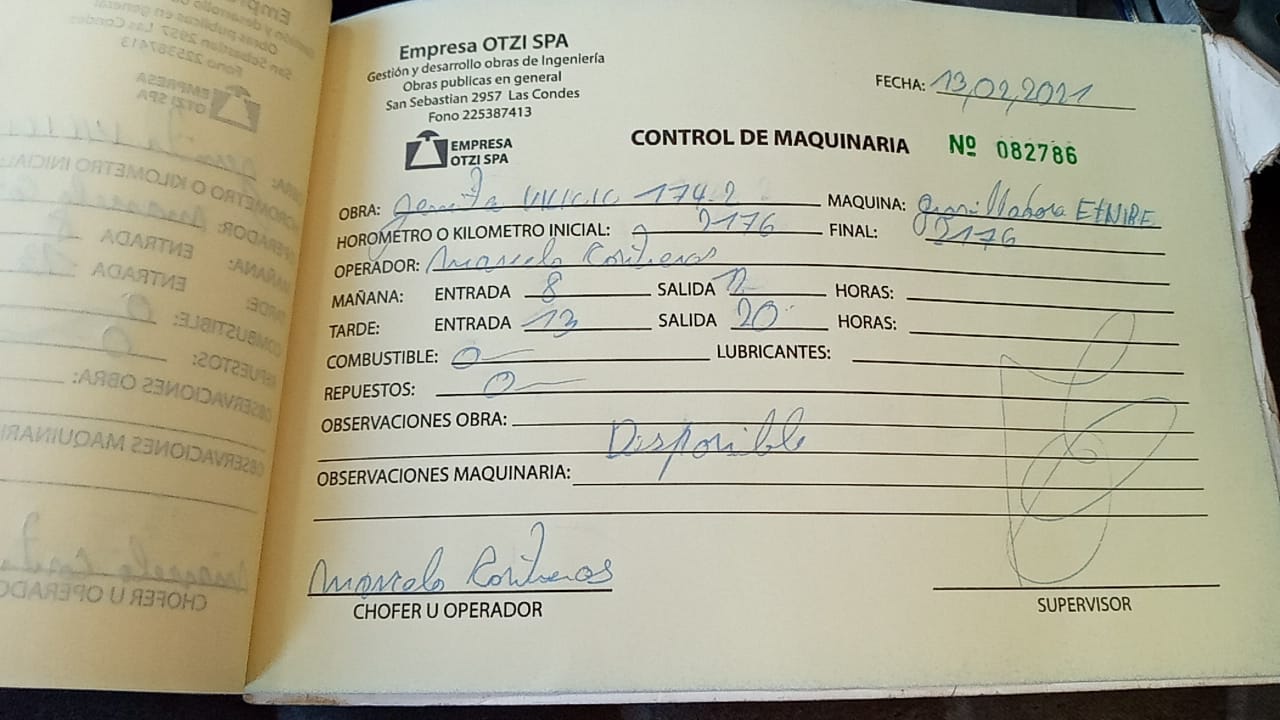 Empresa OTZI SPA
Gestión y desarrollo obras de Ingeniería
Obras publicas en general
San Sebastian 2957 Las Condes
Fono 225387413
EMPRESA
OTZI SPA
FECHA: 13,02,2021
CONTROL DE MAQUINARIA Nº 082786
OBRA: 174.2 MAQUINA:
HOROMETRO O KILOMETRO INICIAL: 2176 FINAL: 2176
OPERADOR: Marcelo Contreras
MAÑANA: ENTRADA 8 SALIDA 12 HORAS:
TARDE: ENTRADA 13 SALIDA 20 HORAS:
COMBUSTIBLE: 0 LUBRICANTES:
REPUESTOS: 0
OBSERVACIONES OBRA:
Disponible
OBSERVACIONES MAQUINARIA:
Marcelo Contreras
CHOFER U OPERADOR
SUPERVISOR